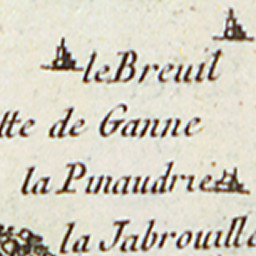 le Breuil
tte de Ganne
la Pinaudrie
la Jabrouille